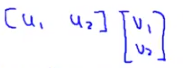 [u₁ u₂] [v₁
v₂]